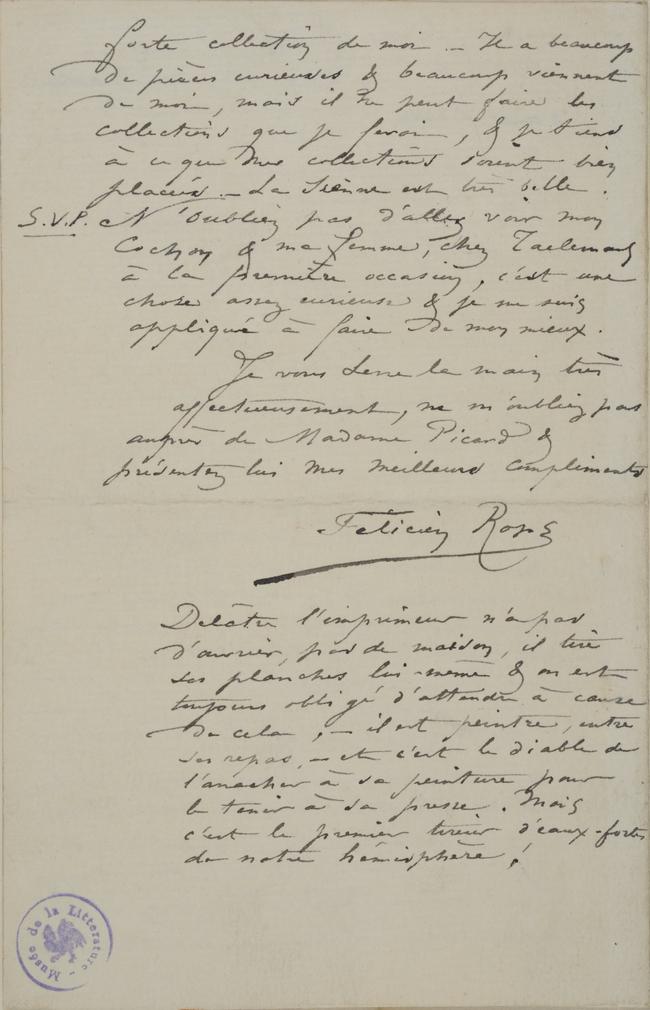 forte collection de moi – Il a beaucoup
de pièces curieuses & beaucoup viennent
de moi, mais il ne peut faire les
collections que je ferai, & je tiens
à ce que mes collections soient bien
placées. – La Sienne est très belle.
S.V.P. N'oubliez pas d'aller voir mon
Cochon & ma femme, chez Taelemans
à la première occasion, c'est une
chose assez curieuse & je me suis
appliqué à faire de mon mieux.
Je vous serre la main très
affectueusement, ne m'oubliez pas
auprès de Madame Picard &
présentez lui mes meilleurs compliments
Félicien Rops
Delâtre l'imprimeur n'a pas
d'ouvrier, pas de maison, il tire
ses planches lui-même & on est
toujours obligé d'attendre à cause
de cela ; – il est peintre, entre
ses repas, – et c'est le diable de
l'arracher à sa peinture pour
le tenir à sa presse. Mais
c'est le premier tireur d'eaux-fortes
de notre hémisphère !
Musée de la Littérature